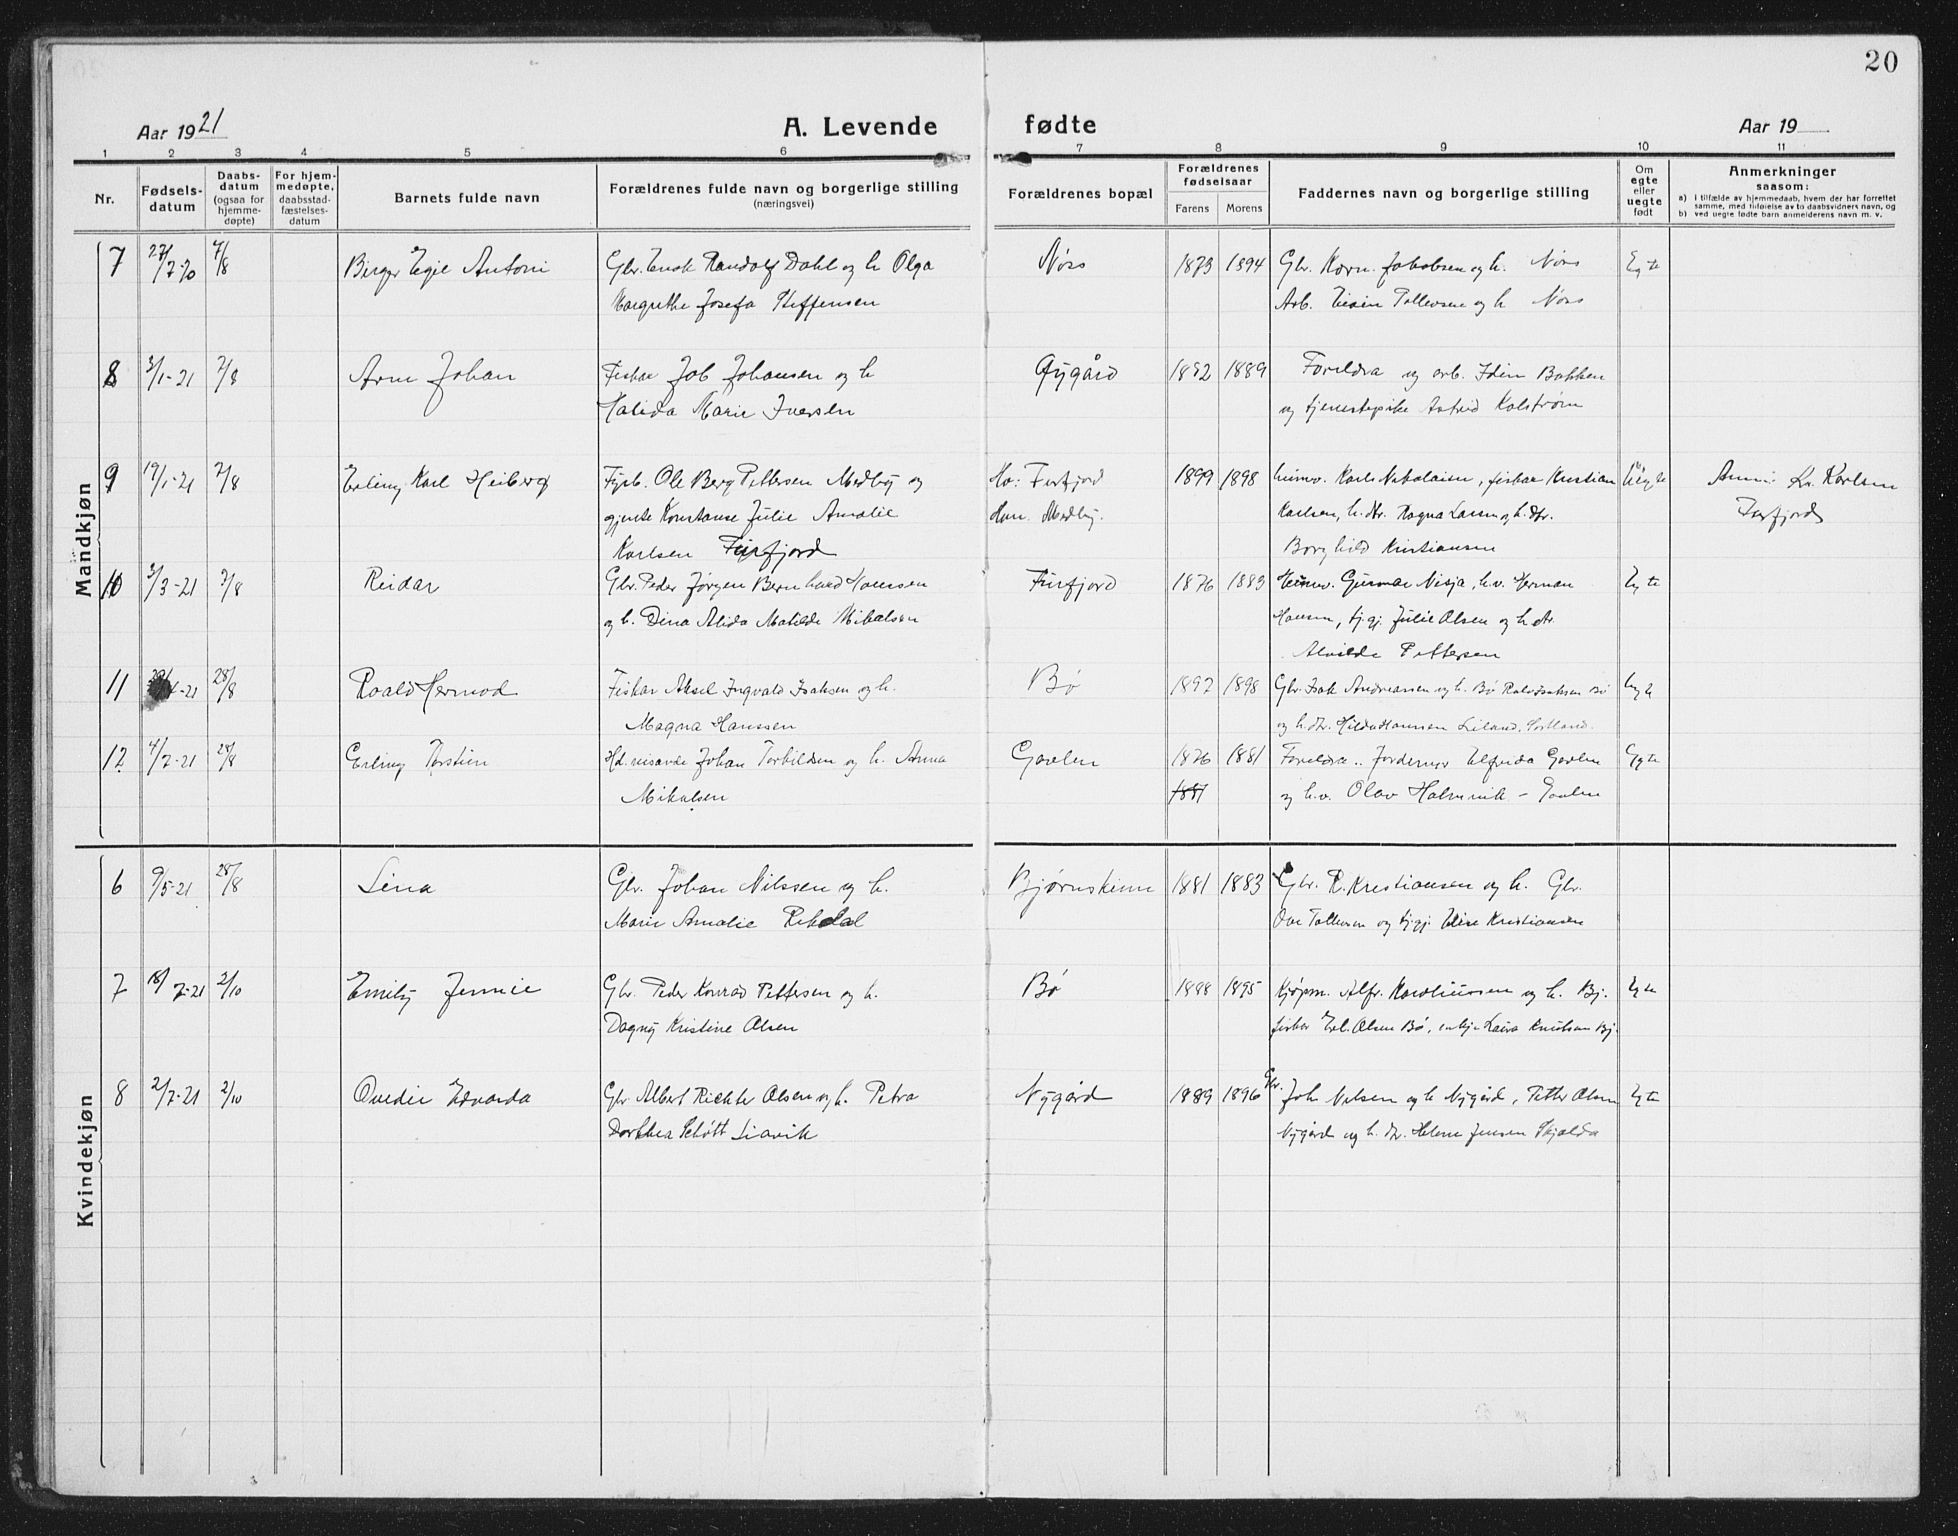 20
Aar 1921 A. Levende fødte Aar 19
1 2 3 4 5 6 7 8 9 10 11
Nr. Fødselsdatum Daabsdatum (ogsaa for hjemmedøpte) For hjemmedøpte, daabsstadfæstelsesdatum Barnets fulde navn Forældrenes fulde navn og borgerlige stilling (næringsvei) Forældrenes bopæl Forældrenes fødselsaar Farens Morens Faddernes navn og borgerlige stilling Om egte eller uegte født Anmerkninger saasom:
a) i tilfælde av hjemmedaab, hvem der har forrettet samme, med tilføielse av to daabsvidners navn, og
b) ved uegte fødte barn anmelderens navn m. v.
Mandkjøn
7 27/7-20 7/8 Birger Egil Antoni Gbr. Randolf Dahl og h. Olga Nøss 1873 1894 Gbr. Korn. Jakobsen og h. Nøss Egte
Margrethe Josefa Steffensen Arb. Tollevsen og h. Nøss
8 3/1-21 7/8 Arne Johan Fiskar Job Johansen og h. Øygård 1892 1889 Foreldra og arb. Edin Bakken
Halida Marie Iversen og tjenestepike Astrid Kolstrøm
9 19/1-21 7/8 Erling Karl Heiberg Fyrb. Ole Berg Pettersen Medby og Ho: Furfjord 1899 1898 Karl Nikolaisen, fiskar Kristian Uegte Karlsen
gjente Konstanse Julie Amalie Han. Medby. Karlsen, h.dtr. Ragna Larsen og h.dtr. Furfjord
Karlsen Furfjord Borghild Kristiansen
10 3/3-21 7/8 Reidar Gbr. Peder Jørgen Bernhard Hanssen Furfjord 1876 1883 Heimv. Gunnar Nisja, h.v. Herman Egte
og h. Dina Alida Matilde Mikalsen Hansen, tj.gj. Julie Olsen og h.dtr.
Alvilde Pettersen
11 4-21 28/8 Roald Hermod Fiskar Aksel Ingvald Isaksen og h. Bø 1897 1898 Gbr. Isak Andreassen og h. Bø Isaksen Bø Egte
Magna Hanssen og h.dtr. Hilda Hanssen Leiland, Sortland.
12 4/7-21 28/8 Erling Torstein Hd.reisande Johan Torkildsen og h. Anna Gavlen 1876 1881 Foreldra, Jordemor Elfrida Gavlen Egte
Mikalsen 1881 og h.v. Olav Holmvik - Gavlen
Kvindekjøn
6 9/5-21 28/8 Lina Gbr. Johan Nilssen og h. Bjørnskinn 1881 1883 Gbr. R. Kristiansen og h. Gbr.
Marie Amalie Rekdal Ove Tollevsen og tj.gj. Elise Kristiansen
7 18/7-21 2/10 Emily Jennie Gbr. Peder Konrad Pettersen og h. Bø 1898 1895 Kjøpm. Alfr. Karoliussen og h. Bj. Egte
Dagny Kristine Olsen fiskar Erl. Olsen Bø, enkje Laura Knutsen Bj.
8 2/7-21 2/10 Ovedie Edvarda Gbr. Albert Richter Olsen og h. Petra Nygård 1889 1896 Gbr. Joh. Nilsen og h. Nygård, Petter Olsen Egte
Dorthea Schøtt Liavik Nygård og h. dtr. Helene Jensen Skjolda